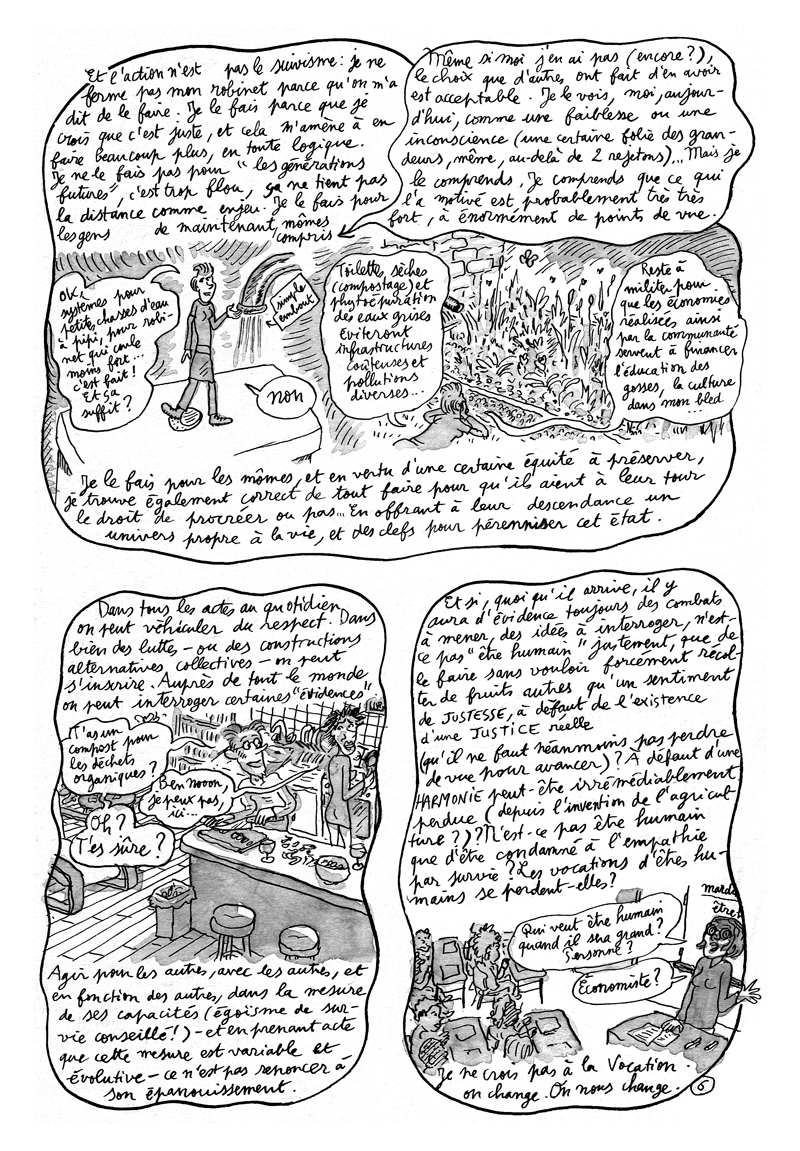 Et l'action n'est pas le suivisme : je ne
ferme pas mon robinet parce qu'on m'a
dit de le faire. Je le fais parce que je
crois que c'est juste, et cela m'amène à en
faire beaucoup plus, en toute logique.
Je ne le fais pas pour "les générations
futures", c'est trop flou, ça ne tient pas
la distance comme enjeu. Je le fais pour
les gens de maintenant, mômes
compris
Même si moi j'en ai pas (encore?),
le choix que d'autres ont fait d'en avoir
est acceptable. Je le vois, moi, aujour-
d'hui, comme une faiblesse ou une
inconscience (une certaine folie des gran-
deurs, même, au-delà de 2 rejetons)... Mais je
le comprends. Je comprends que ce qui
l'a motivé est probablement très très
fort, à énormément de points de vue.
OK,
systèmes pour
petites chasses d'eau
à pipi, pour robi-
net qui coule
moins fort...
c'est fait!
Et ça
suffit?
simple
embout
non
Toilettes sèches
(compostage) et
phytoépuration
des eaux grises
éviteront
infrastructures
coûteuses et
pollutions
diverses...
Reste à
militer pour
que les économies
réalisées ainsi
par la communauté
servent à financer
l'éducation des
gosses, la culture
dans mon bled
Je le fais pour les mômes, et en vertu d'une certaine équité à préserver,
je trouve également correct de tout faire pour qu'ils aient à leur tour
le droit de procréer ou pas... En offrant à leur descendance un
univers propre à la vie, et des clefs pour pérenniser cet état.
Dans tous les actes au quotidien
on peut véhiculer du respect. Dans
bien des luttes - ou des constructions
alternatives, collectives - on peut
s'inscrire. Auprès de tout le monde
on peut interroger certaines "évidences"
T'as un
compost pour
les déchets
organiques?
Ben nooon
je peux pas,
ici...
Oh?
T'es sûre?
Agir pour les autres, avec les autres, et
en fonction des autres, dans la mesure
de ses capacités (égoïsme de sur-
vie conseillé!) - et en prenant acte
que cette mesure est variable et
évolutive - ce n'est pas renoncer à
son épanouissement.
Et si, quoi qu'il arrive, il y
aura d'évidence toujours des combats
à mener, des idées à interroger, n'est-
ce pas "être humain" justement, que de
le faire sans vouloir forcément récol-
ter de fruits autres qu'un sentiment
de JUSTESSE, à défaut de l'existence
d'une JUSTICE réelle
(qu'il ne faut néanmoins pas perdre
de vue pour avancer)? À défaut d'une
HARMONIE peut-être irrémédiablement
perdue (depuis l'invention de l'agricul-
ture?)? N'est-ce pas être humain
que d'être condamné à l'empathie
par survie? Les vocations d'êtres hu-
mains se perdent-elles?
mardi
être
Qui veut être humain
quand il sera grand?
Personne?
Économiste?
Je ne crois pas à la Vocation.
On change. On nous change.
6